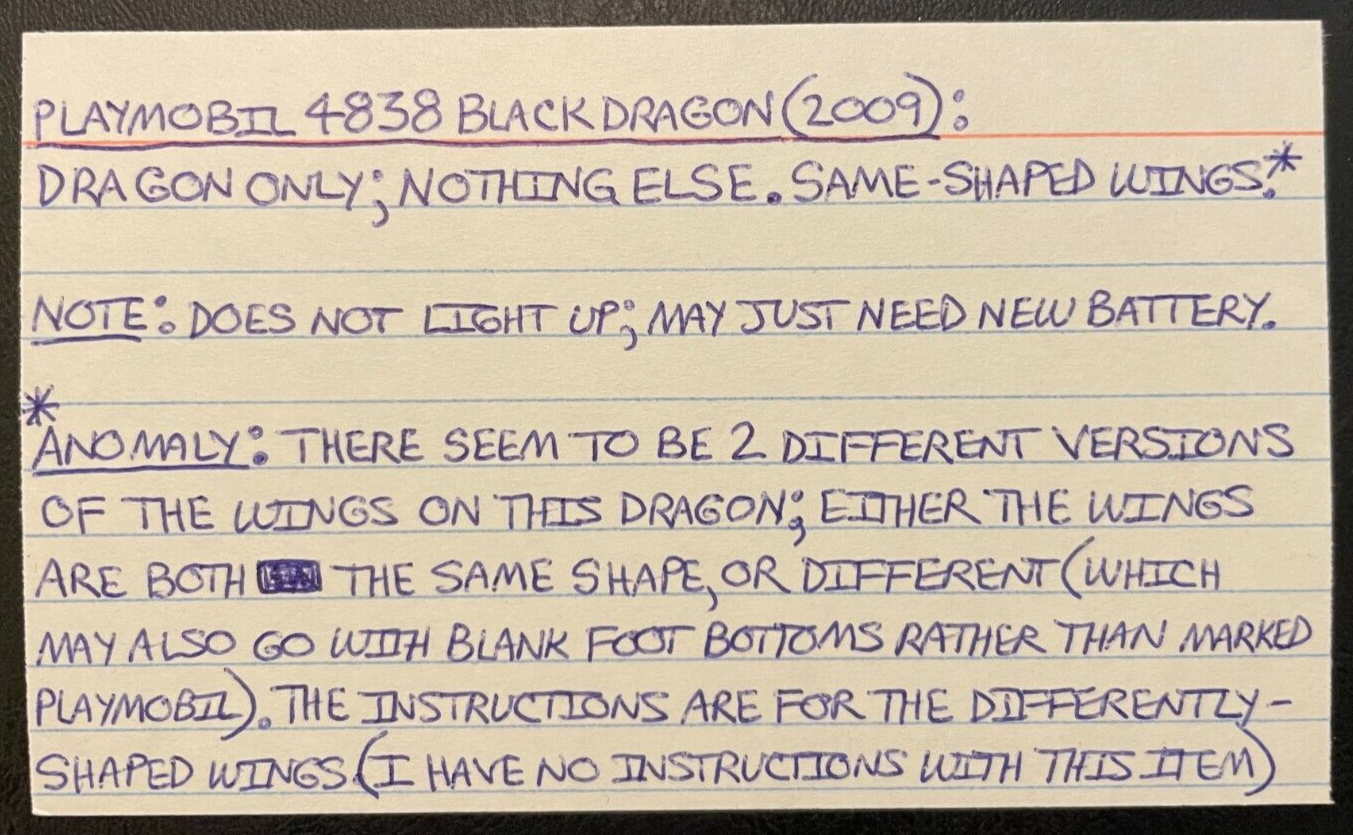 PLAYMOBIL 4838 BLACK DRAGON (2009):
DRAGON ONLY; NOTHING ELSE. SAME-SHAPED WINGS.*
NOTE: DOES NOT LIGHT UP; MAY JUST NEED NEW BATTERY.
*
ANOMALY: THERE SEEM TO BE 2 DIFFERENT VERSIONS
OF THE WINGS ON THIS DRAGON; EITHER THE WINGS
ARE BOTH THE SAME SHAPE, OR DIFFERENT (WHICH
MAY ALSO GO WITH BLANK FOOT BOTTOMS RATHER THAN MARKED
PLAYMOBIL). THE INSTRUCTIONS ARE FOR THE DIFFERENTLY-
SHAPED WINGS (I HAVE NO INSTRUCTIONS WITH THIS ITEM)